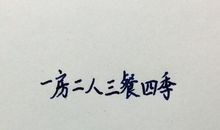 一房二人三餐四季